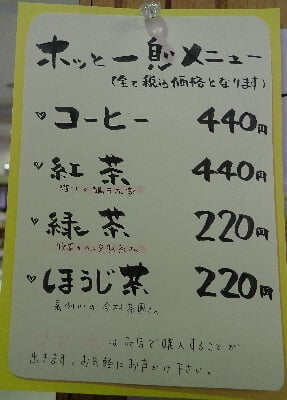 ホッと一息メニュー
(全て税込価格となります)
コーヒー 440円
紅茶 440円
緑茶 220円
ほうじ茶 220円
は売店で購入することが
出来ます。お気軽にお声がけ下さい。